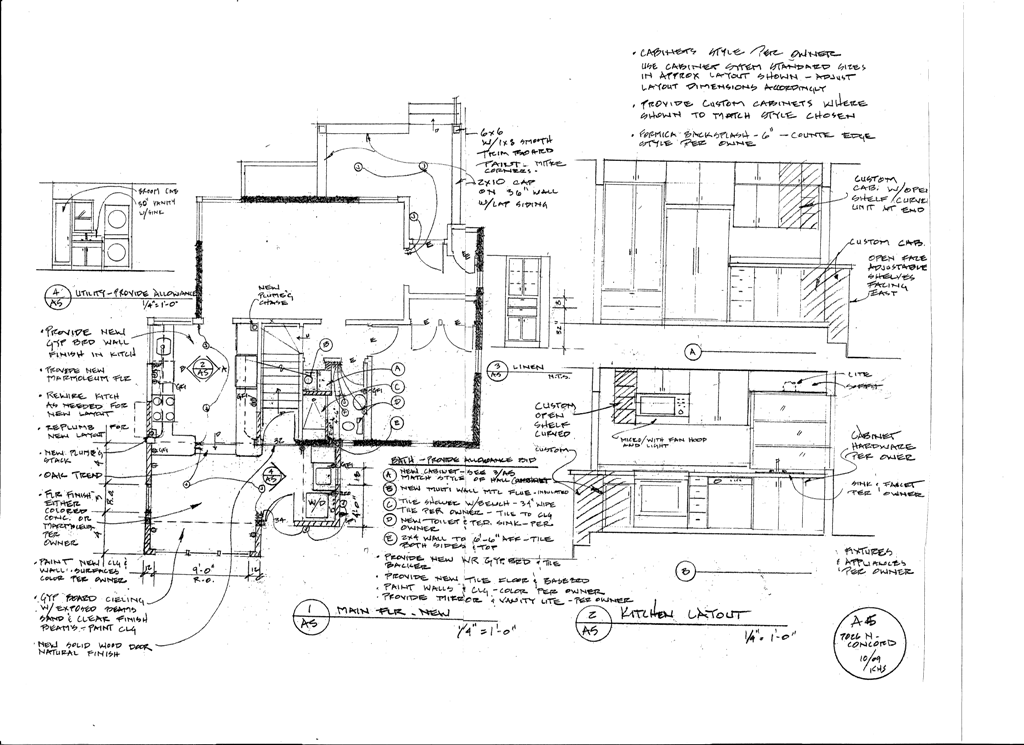 • CABINETS STYLE PER OWNER
USE CABINET SYTEM STANDARD SIZES
IN APPROX LAYOUT SHOWN - ADJUST
LAYOUT DIMENSIONS ACCORDINGLY
• PROVIDE CUSTOM CABINETS WHERE
SHOWN TO MATCH STYLE CHOSEN
• FORMICA BACKSPLASH - 6" - COUNTE EDGE
STYLE PER OWNE
6x6
W/1x8 SMOOTH
TRIM BOARD
PAINT - MITRE
CORNERS.
2x10 CAP
ON 36" WALL
W/LAP SIDING
BROOM CAB
30" VANITY
W/SINK
4
A5
UTILITY - PROVIDE ALLOWANCE
1/4" = 1'-0"
NEW
PLUMB'G
CHASE
CUSTOM
CAB. W/OPEN
SHELF/CURVED
UNIT AT END
CUSTOM CAB.
OPEN FACE
ADJUSTABLE
SHELVES
FACING
EAST
• PROVIDE NEW
GYP BRD WALL
FINISH IN KITCH
• PROVIDE NEW
MARMOLEUM FLR
• REWIRE KITCH
AS NEEDED FOR
NEW LAYOUT
• REPLUMB FOR
NEW LAYOUT
• NEW PLUMB'G
STACK
• OAK TREAD
• FLR FINISH
EITHER
COLORED
CONC. OR
MARMOLEUM
PER
OWNER
• PAINT NEW CLG &
WALL SURFACES
COLOR PER OWNER
• GYP BOARD CIELING
W/EXPOSED BEAMS
SAND & CLEAR FINISH
BEAMS - PAINT CLG
• NEW SOLID WOOD DOOR
NATURAL FINISH
2
A5
D
A
GFI
GFI
GFI
E
E
E
E
E
B
A
C
D
E
32
34
4
A5
W/D
12
9'-0"
R.O.
12
3
A5
LINEN
N.T.S.
8
32"
A
LITE
SOFFIT
CUSTOM
OPEN
SHELF
CURVED
CUSTOM
MICRO/WITH FAN HOOD
AND LIGHT
CABINET
HARDWARE
PER OWER
SINK & FACET
PER OWNER
B
FIXTURES
& APPLIANCES
PER OWNER
BATH - PROVIDE ALLOWANCE BID
A NEW CABINET - SEE 3/A5
MATCH STYLE OF HALL CABINET
B NEW MULTI WALL MTL FLUE - INSULATED
C TILE SHOWER W/BENCH - 34" WIDE
TILE PER OWNER - TILE TO CLG
D NEW TOILET & PED. SINK - PER
OWNER
E 2x4 WALL TO 6'-6" AFF - TILE
BOTH SIDES & TOP
• PROVIDE NEW WR GYP BRD & TILE
BACKER
• PROVIDE NEW TILE FLOOR & BASEBRD
• PAINT WALLS & CLG - COLOR PER OWNER
• PROVIDE MIRROR & VANITY LITE - PER OWNER
1
A5
MAIN FLR - NEW
1/4" = 1'-0"
2
A5
KITCHEN LAYOUT
1/4" = 1'-0"
A5
7026 N.
CONCORD
10/09
KHS